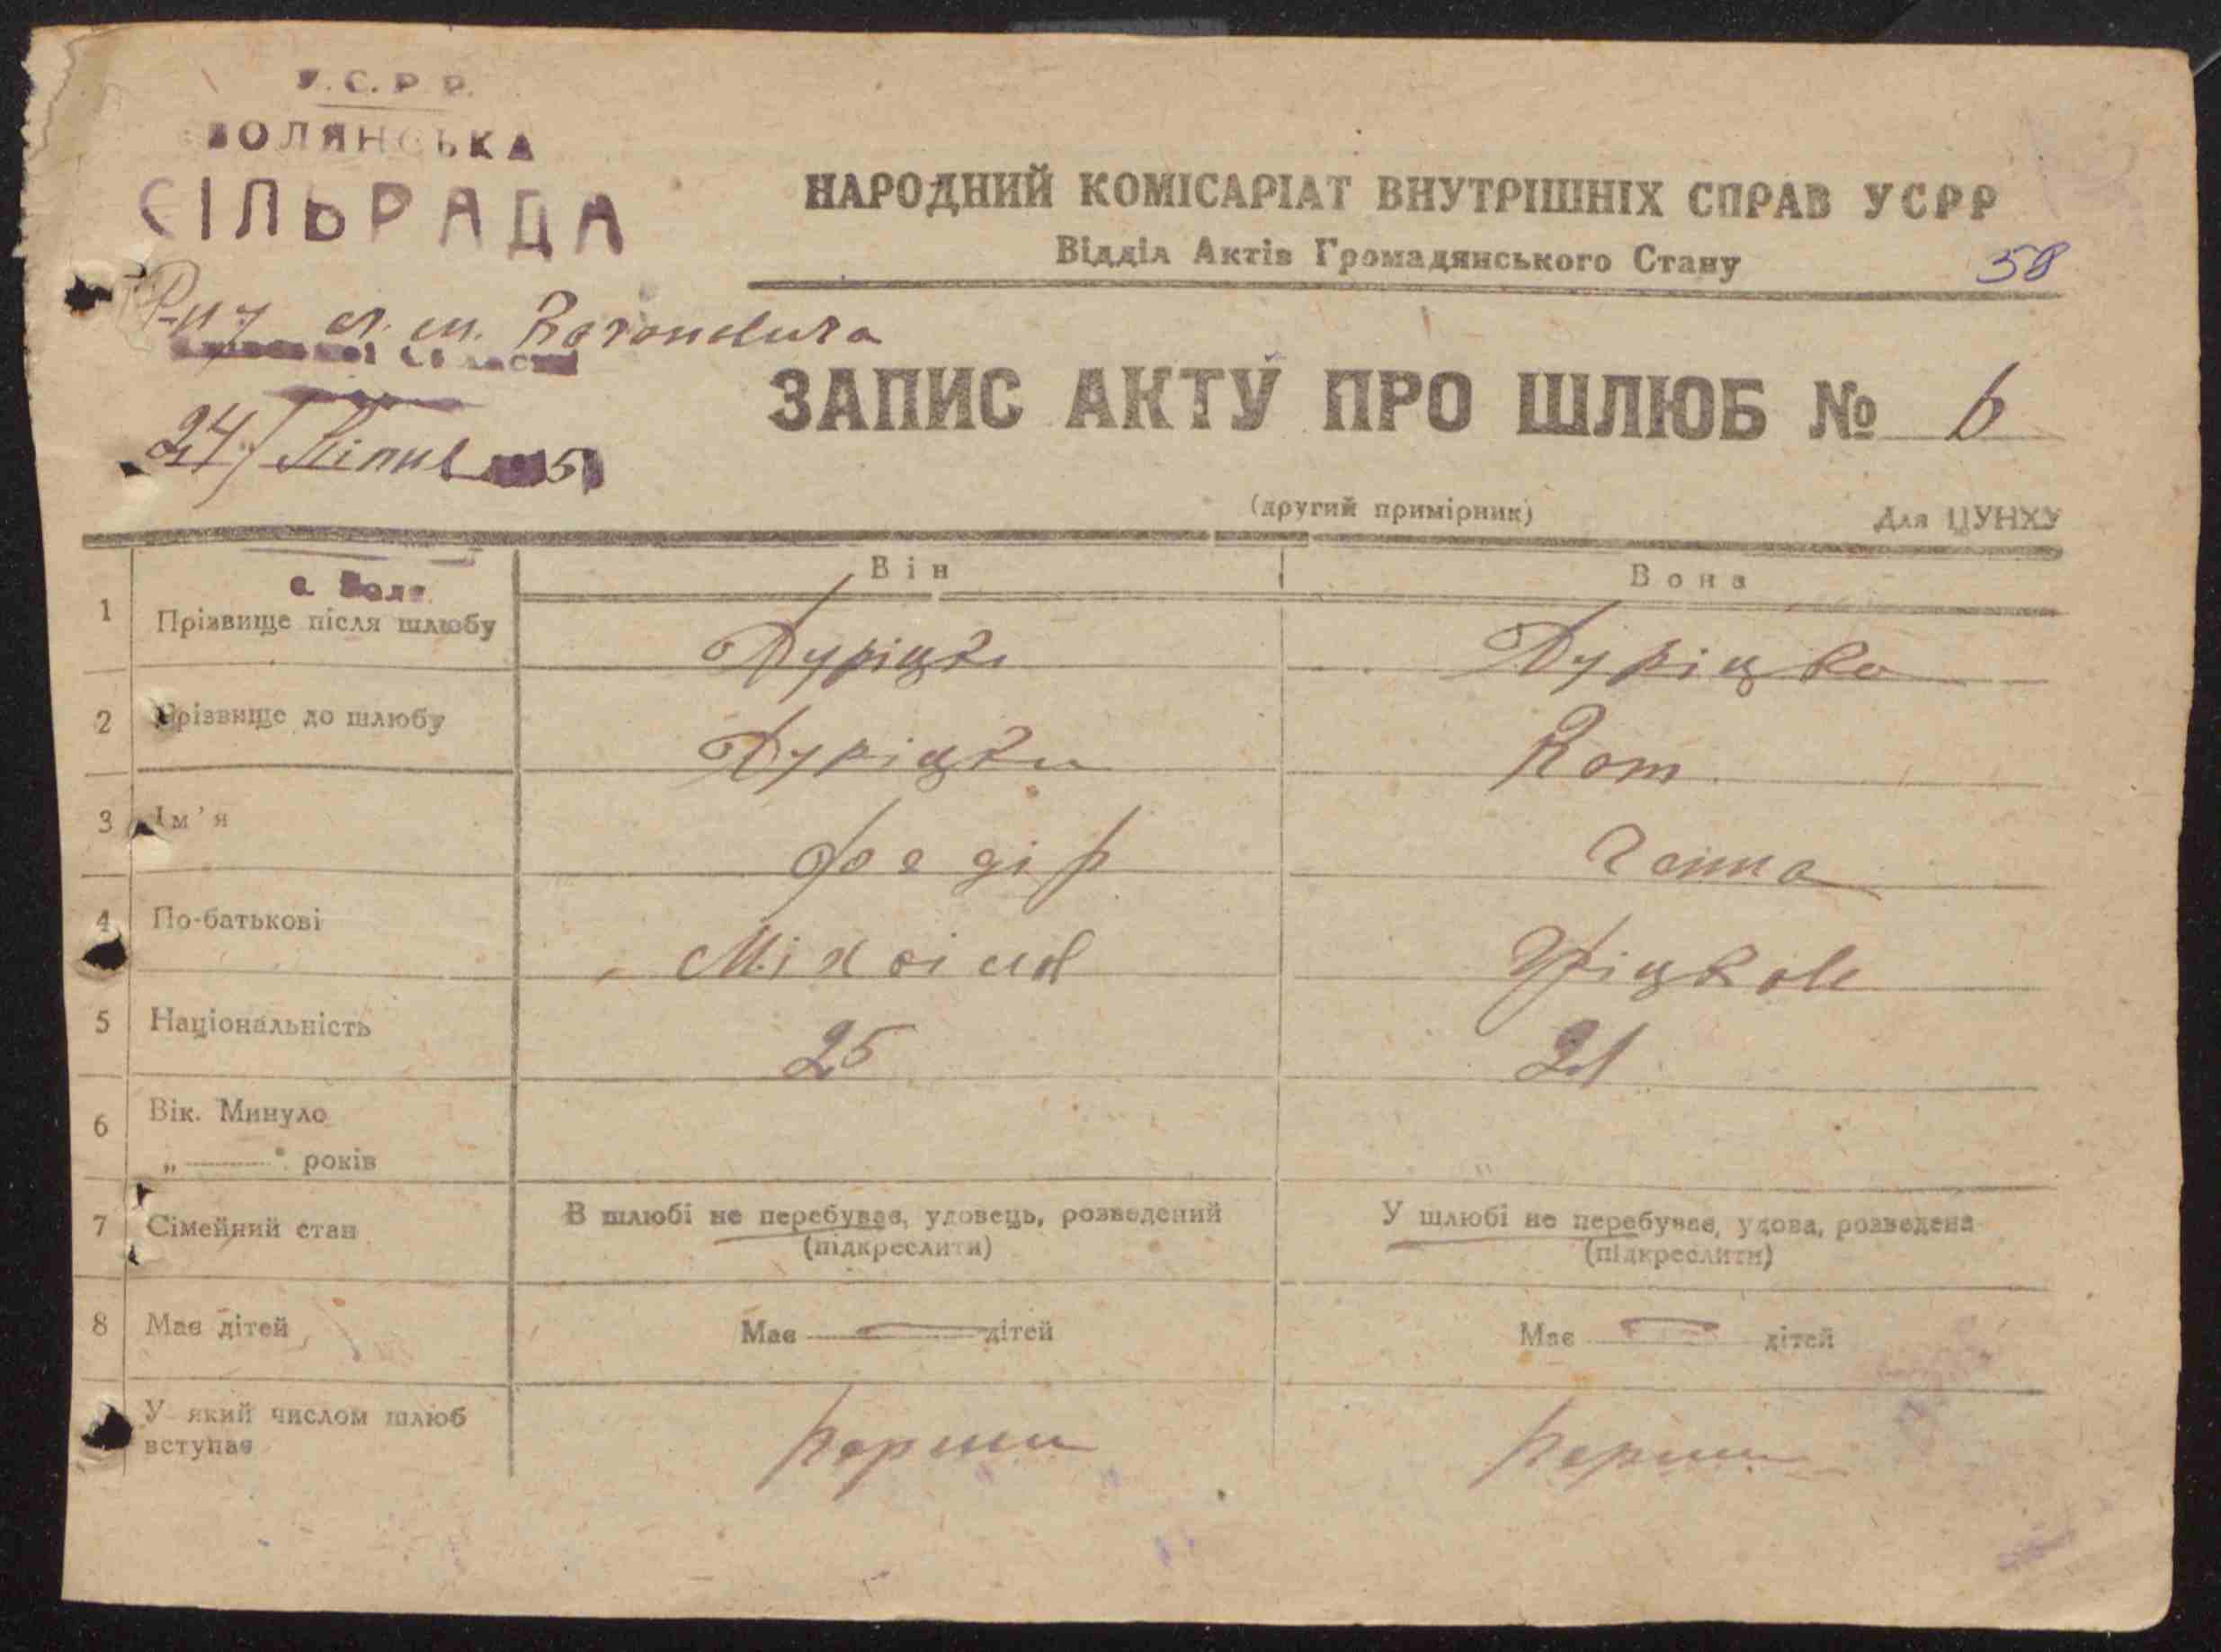 У.С.Р.Р.
ВОЛЯНСЬКА
СІЛЬРАДА
НАРОДНИЙ КОМІСАРІАТ ВНУТРІШНІХ СПРАВ УСРР
Відділ Актів Громадянського Стану
58
Р-ну
ЗАПИС АКТУ ПРО ШЛЮБ № 6
24/ Липня 5
(другий примірник) Для ЦУНХУ
Він Вона
с Воля
1 Прізвище після шлюбу Дуріцки Дуріцка
2 Прізвище до шлюбу Дуріцки Кот
3 Ім'я Феедір Ганна
4 По-батькові Міхаіла Гріцков
5 Національність 25 21
6 Вік. Минуло
„ ” років
7 Сімейний стан В шлюбі не перебуває, удовець, розведений У шлюбі не перебуває, удова, розведена
(підкреслити) (підкреслити)
8 Має дітей Має — дітей Має — дітей
У який числом шлюб вступає перши перши